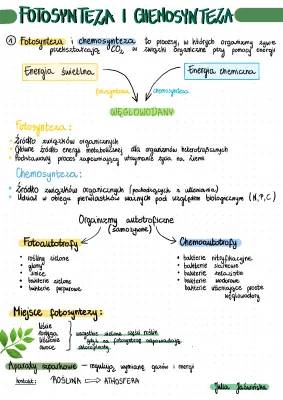 FOTOSYNTEZA I CHEMOSYNTEZA
① Fotosynteza i chemosynteza to procesy, w których organizmy żywe
przekształcają CO₂ w związki organiczne przy pomocy energii
Energia świetlna
Energia chemiczna
fotosynteza
chemosynteza
WĘGLOWODANY
Fotosynteza:
• źródło związków organicznych
• Główne źródło energii metabolicznej dla organizmów heterotroficznych
• Podstawowy proces zapewniający utrzymanie życia na ziemi
Chemosynteza:
• źródło związków organicznych (pochodzących z utleniania)
• Udział w obiegu pierwiastków ważnych pod względem biologicznym (N, P, C)
Organizmy autotroficzne
(samożywne)
Fotoautotrofy
Chemoautotrofy
• rośliny zielone
• glony
• sinice
• bakterie zielone
• bakterie purpurowe
• bakterie nitryfikacyjne
• bakterie siarkowe
• bakterie żelaziste
• bakterie wodorowe
• bakterie utleniające proste
węglowodory
Miejsce fotosyntezy:
liście
łodyga
owoce
wszystkie zielone części roślin
gdyż za fotosyntezę odpowiadają
chloroplasty
Aparaty szparkowe – regulują wymianę gazów i energii
kontakt: ROŚLINA ⟹ ATMOSFERA
Julia